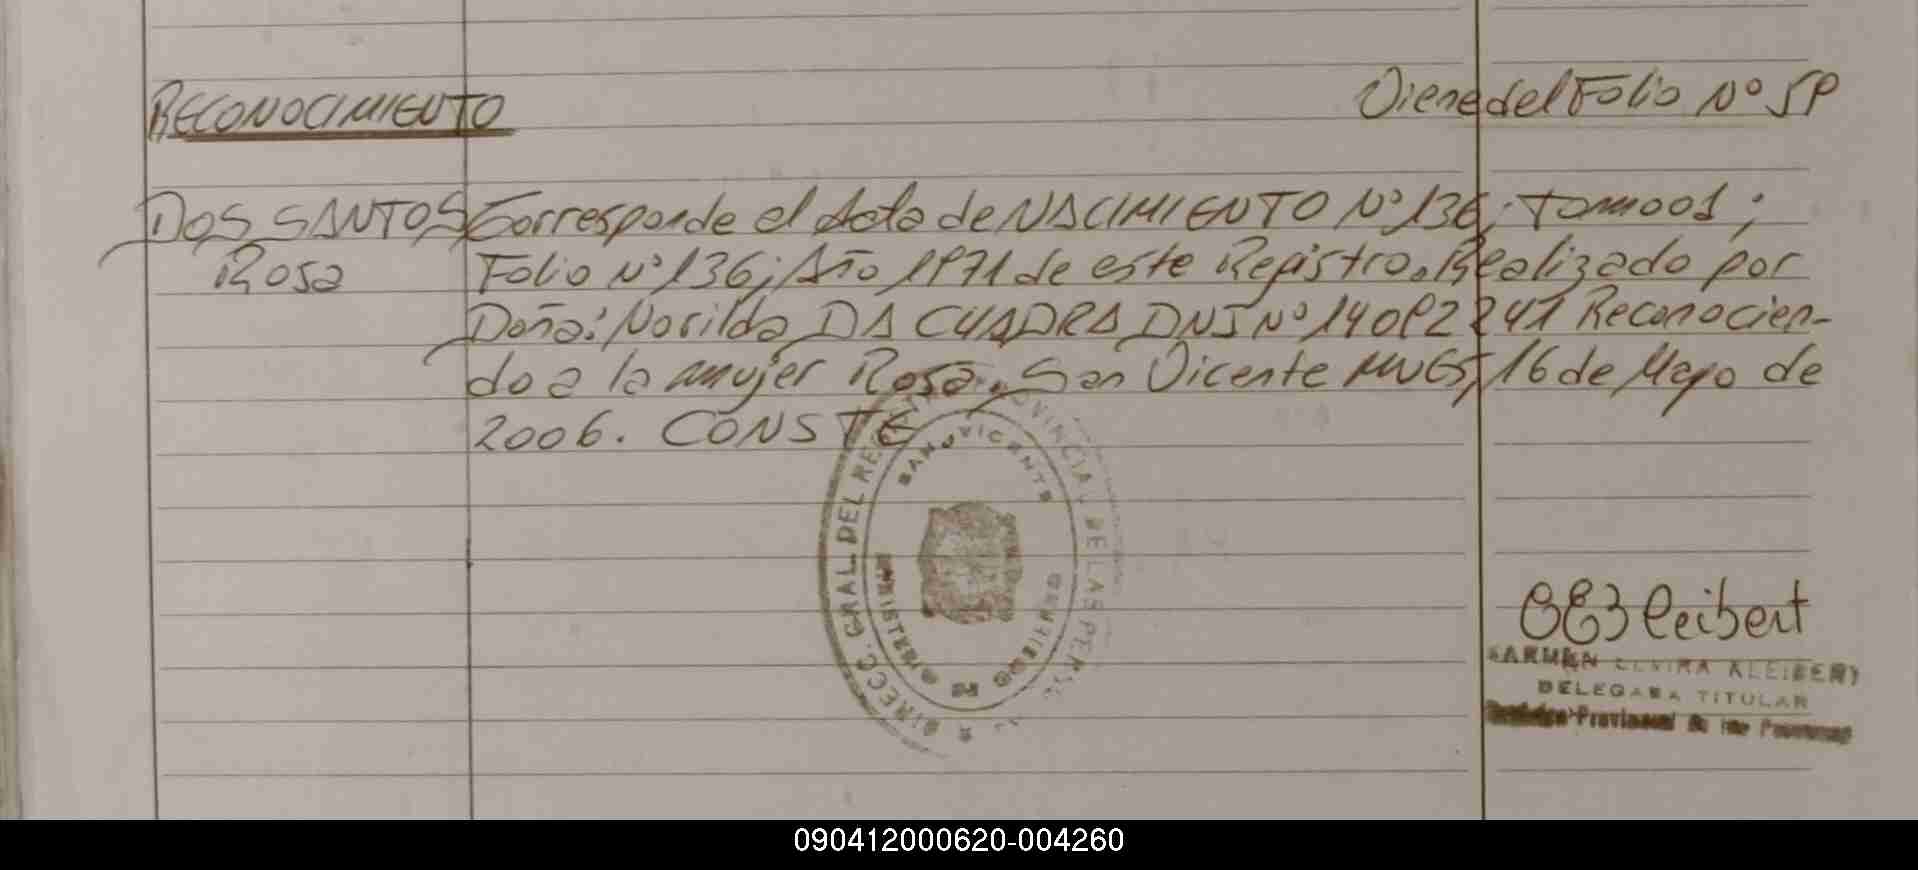 RECONOCIMIENTO
Viene del Folio Nº 59
DOS SANTOS
Rosa
Corresponde el Acta de NACIMIENTO Nº 136; Tomo 001;
Folio Nº 136; Año 1971 de este Registro. Realizado por
Doña: Norilda DA CUADRA DNI Nº 14092241 Reconocien-
do a la mujer Rosa. San Vicente MNES, 16 de Mayo de
2006. CONSTE
DIRECC. GRAL. DEL REGISTRO PROVINCIAL DE LAS PERSONAS
SAN VICENTE
MINISTERIO DE GOBIERNO
CARMEN ELVIRA KLEIBERT
DELEGADA TITULAR
Registro Provincial de las Personas
090412000620-004260